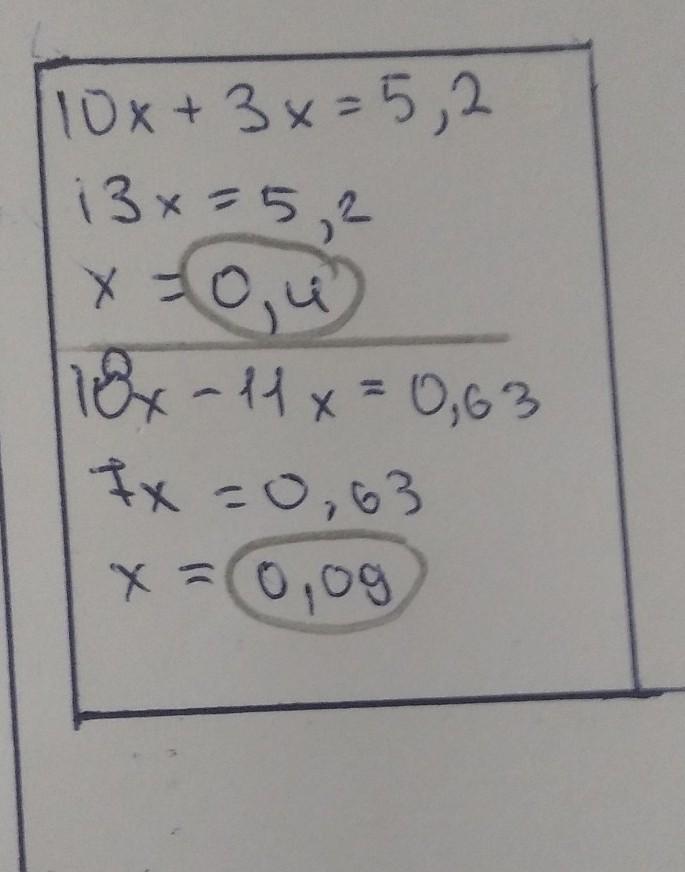 10x + 3x = 5,2
13x = 5,2
x = 0,4
18x - 11x = 0,63
7x = 0,63
x = 0,09